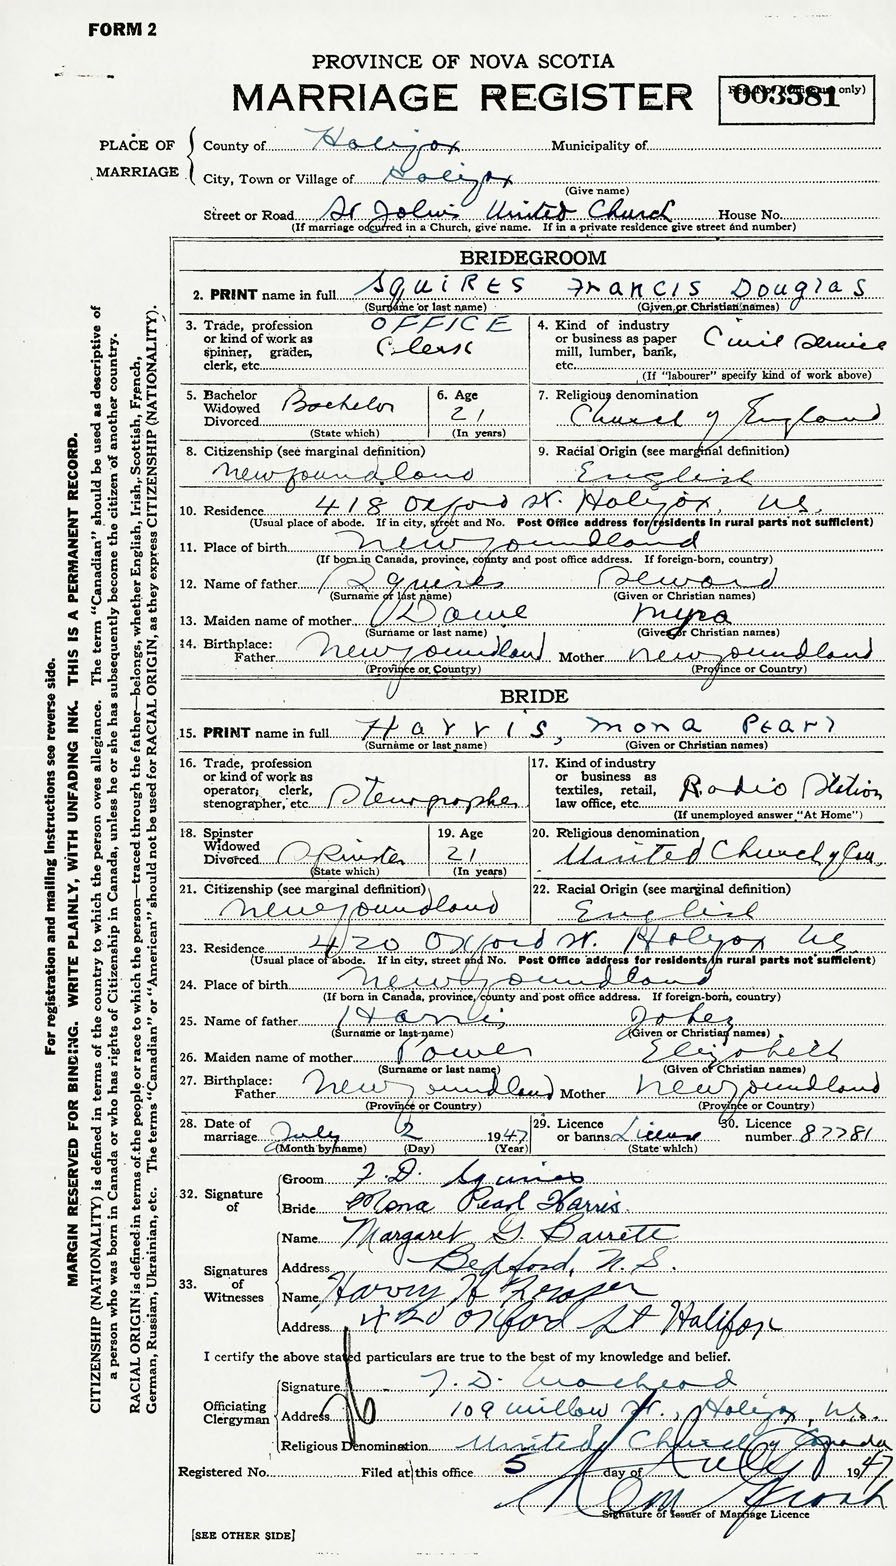 FORM 2
PROVINCE OF NOVA SCOTIA
MARRIAGE REGISTER
Reg. No. (Office use only)
003581
PLACE OF MARRIAGE
County of Halifax Municipality of
City, Town or Village of Halifax
(Give name)
Street or Road St John's United Church House No.
(If marriage occurred in a Church, give name. If in a private residence give street and number)
BRIDEGROOM
2. PRINT name in full SQUIRES Francis Douglas
(Surname or last name) (Given or Christian names)
3. Trade, profession or kind of work as spinner, grader, clerk, etc. OFFICE Clerk
4. Kind of industry or business as paper mill, lumber, bank, etc. Civil Service
(If "labourer" specify kind of work above)
5. Bachelor Widowed Divorced Bachelor
(State which)
6. Age 21
(In years)
7. Religious denomination
Church of England
8. Citizenship (see marginal definition)
Newfoundland
9. Racial Origin (see marginal definition)
English
10. Residence 418 Oxford St. Halifax, NS.
(Usual place of abode. If in city, street and No. Post Office address for residents in rural parts not sufficient)
11. Place of birth Newfoundland
(If born in Canada, province, county and post office address. If foreign-born, country)
12. Name of father Squires Seward
(Surname or last name) (Given or Christian names)
13. Maiden name of mother Dawe Myra
(Surname or last name) (Given or Christian names)
14. Birthplace: Father Newfoundland Mother Newfoundland
(Province or Country) (Province or Country)
BRIDE
15. PRINT name in full Harris, Mona Pearl
(Surname or last name) (Given or Christian names)
16. Trade, profession or kind of work as operator, clerk, stenographer, etc. Stenographer
17. Kind of industry or business as textiles, retail, law office, etc. Radio Station
(If unemployed answer "At Home")
18. Spinster Widowed Divorced Spinster
(State which)
19. Age 21
(In years)
20. Religious denomination
United Church of Can.
21. Citizenship (see marginal definition)
Newfoundland
22. Racial Origin (see marginal definition)
English
23. Residence 420 Oxford St. Halifax NS
(Usual place of abode. If in city, street and No. Post Office address for residents in rural parts not sufficient)
24. Place of birth Newfoundland
(If born in Canada, province, county and post office address. If foreign-born, country)
25. Name of father Harris Jabez
(Surname or last name) (Given or Christian names)
26. Maiden name of mother Power Elizabeth
(Surname or last name) (Given or Christian names)
27. Birthplace: Father Newfoundland Mother Newfoundland
(Province or Country) (Province or Country)
28. Date of marriage July 2 1947
(Month by name) (Day) (Year)
29. Licence or banns License
(State which)
30. Licence number 87781
32. Signature of
Groom F. D. Squires
Bride Mona Pearl Harris.
33. Signatures of Witnesses
Name Margaret G. Barrett
Address Bedford, N.S.
Name Harvey H
Address 420 Oxford St Halifax
I certify the above stated particulars are true to the best of my knowledge and belief.
Officiating Clergyman
Signature
Address 109 Willow St., Halifax, NS.
Religious Denomination United Church of Canada
Registered No. Filed at this office 5 day of July 1947
Signature of Issuer of Marriage Licence
[SEE OTHER SIDE]
For registration and mailing instructions see reverse side.
MARGIN RESERVED FOR BINDING. WRITE PLAINLY, WITH UNFADING INK. THIS IS A PERMANENT RECORD.
CITIZENSHIP (NATIONALITY) is defined in terms of the country to which the person owes allegiance. The term "Canadian" should be used as descriptive of
a person who was born in Canada or who has rights of Citizenship in Canada, unless he or she has subsequently become the citizen of another country.
RACIAL ORIGIN is defined in terms of the people or race to which the person—traced through the father—belongs, whether English, Irish, Scottish, French,
German, Russian, Ukrainian, etc. The terms "Canadian" or "American" should not be used for RACIAL ORIGIN, as they express CITIZENSHIP (NATIONALITY).